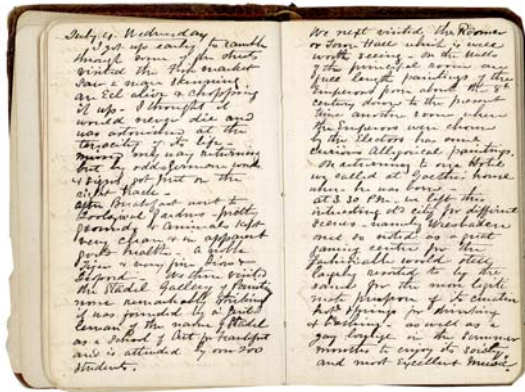 July 4. Wednesday
I got up early to ramble
through some of the streets
visited the Fish market
Saw a man skinning
an Eel alive & chopping
it up - I thought it
would never die and
was astonished at the
tenacity of its life -
my way returning
but by old German words
& signs got put on the
right track -
After Breakfast went to
Zoological Gardens - pretty
grounds & animals kept
very clean & in apparent
good health - a noble
Tiger & very fine Lion &
Leopard - We then visited
the Stadel Gallery of Paintings
none remarkably striking
it was founded by a
of the name of Stadel
as a School of Art for Frankfort
and is attended by over 300
students.
We next visited the Roomer
or Town Hall which is well
worth seeing on the walls
of the principal room are
full length paintings of the
Emperors from about the 8th
century down to the present
time another room where
the Emperors were chosen
by the Electors has some
curious Allegorical paintings.
On returning to our Hotel
we called at Goethe's house
where he was born -
at 3.30 P.M. we left this
interesting old city for different
scenes - namely Wiesbaden
once so noted as a great
gaming centre for the
fashionable world still
largely resorted to by the
same for the more legiti
mate purpose of its curative
hot springs for drinking
& bathing - as well as a
gay in the summer
months to enjoy its society
and most excellent music.